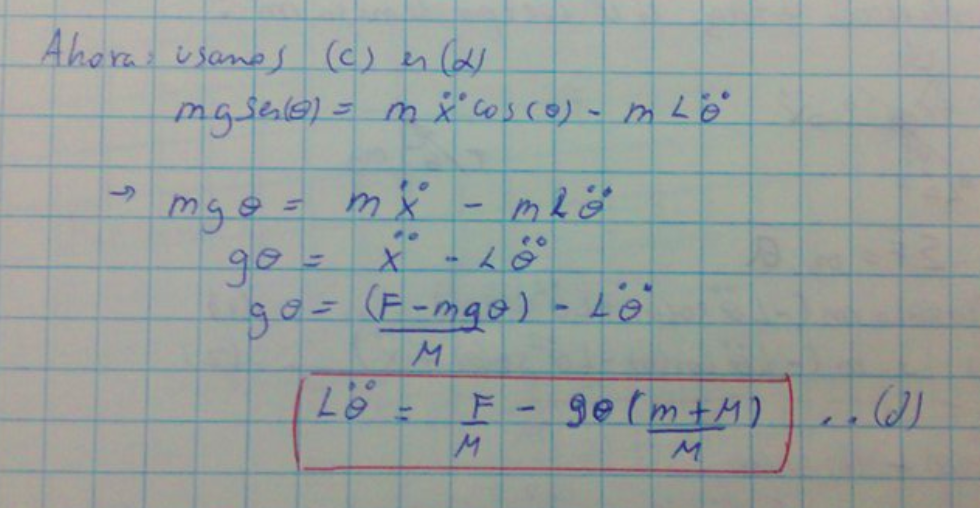 Ahora: usamos (c) en (d)
mg Sen(θ) = m ẍ cos(θ) - m L θ̈
→ mgθ = m ẍ - m L θ̈
gθ = ẍ - L θ̈
gθ = (F - mgθ)/M - L θ̈
L θ̈ = F/M - gθ (m + M)/M